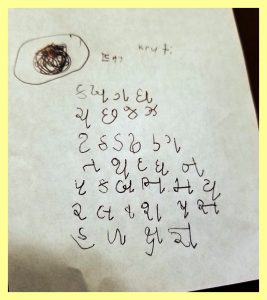 kruti
ક ખ ગ ઘ
ચ છ જ ઝ
ટ ઠ ડ ઢ ણ
ત થ દ ધ ન
પ ફ બ ભ મ ય
ર લ વ શ ષ સ
હ ળ ક્ષ જ્ઞ